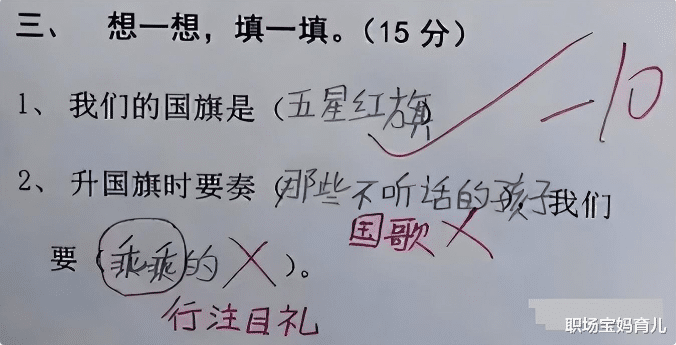 三、 想一想，填一填。（15 分）
-10
1、 我们的国旗是（五星红旗）
2、 升国旗时要奏（那些不听话的孩子我们
国歌
要（乖乖的）。
行注目礼
职场宝妈育儿